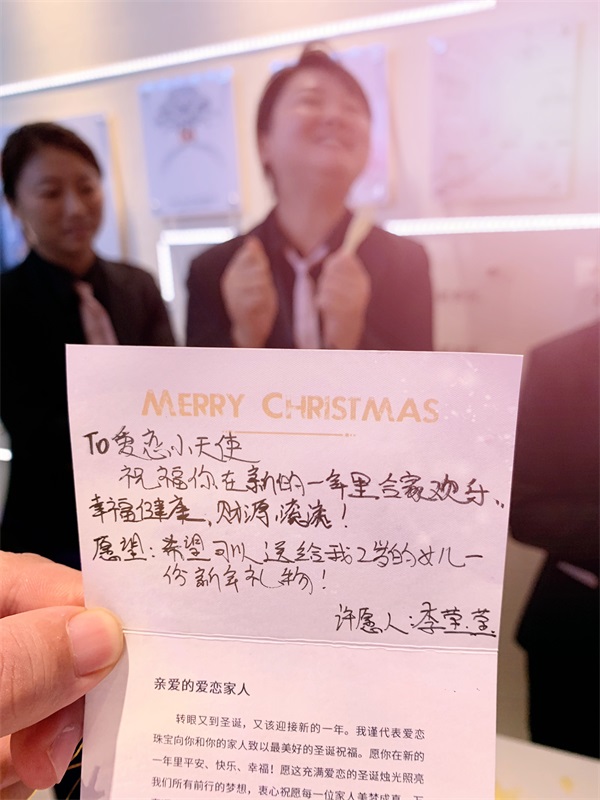 MERRY CHRISTMAS
To爱恋小天使
祝福你在新的一年里合家欢乐,
幸福健康,财源滚滚!
愿望:希望可以送给我2岁的女儿一
份新年礼物!
许愿人:李
亲爱的爱恋家人
转眼又到圣诞,又该迎接新的一年。我谨代表爱恋
珠宝向你和你的家人致以最美好的圣诞祝福。愿你在新的
一年里平安、快乐、幸福!愿这充满爱恋的圣诞烛光照亮
我们所有前行的梦想,衷心祝愿每一位家人美梦成真,万